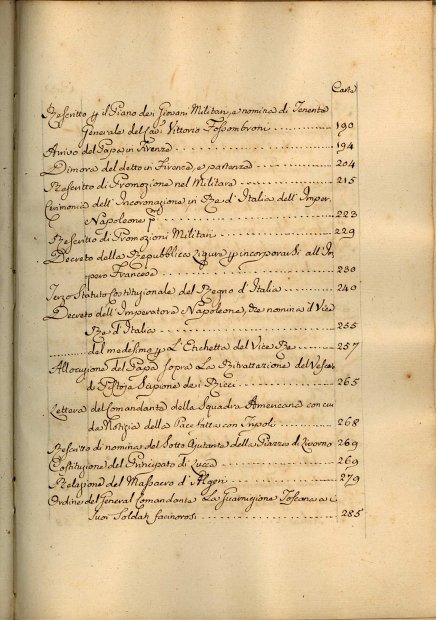 Carte
Rescritto p il Piano dei Giovani Militari, e nomina di Tenente
Generale del Cav. Vittorio Fossombroni ............ 190
Arrivo del Papa in Firenze ............ 194
Dimora del detto in Firenze, e partenza ............ 204
Rescritto di Promozione nel Militare ............ 215
Cerimonia dell' Incoronazione in Re d' Italia dell' Imper.
Napoleone Pº ............ 223
Rescritto di Promozioni Militari ............ 229
Decreto della Repubblica Ligure p incorporarsi all' Im
pero Francese ............ 230
Terzo Statuto Costituzionale del Regno d' Italia ............ 240
Decreto dell' Imperatore Napoleone, che nomina il Vice
Re d' Italia ............ 255
............ del medesimo p L' Etichetta del Vice Re ............ 257
Allocuzione del Papa sopra La Ritrattazione del Vesco.
di Pistoja Scipione dei Ricci ............ 265
Lettera del Comandante della Squadra Americana con cui
da Notizia della Pace fatta con Tripoli ............ 268
Rescritto di nomina del Sotto Ajutante della Piazza di Livorno 269
Costituzione del Principato di Lucca ............ 269
Relazione del Massacro d' Algeri ............ 279
Ordine del General Comandante La Guarnigione Toscana a i
suoi Soldati facinorosi ............ 285